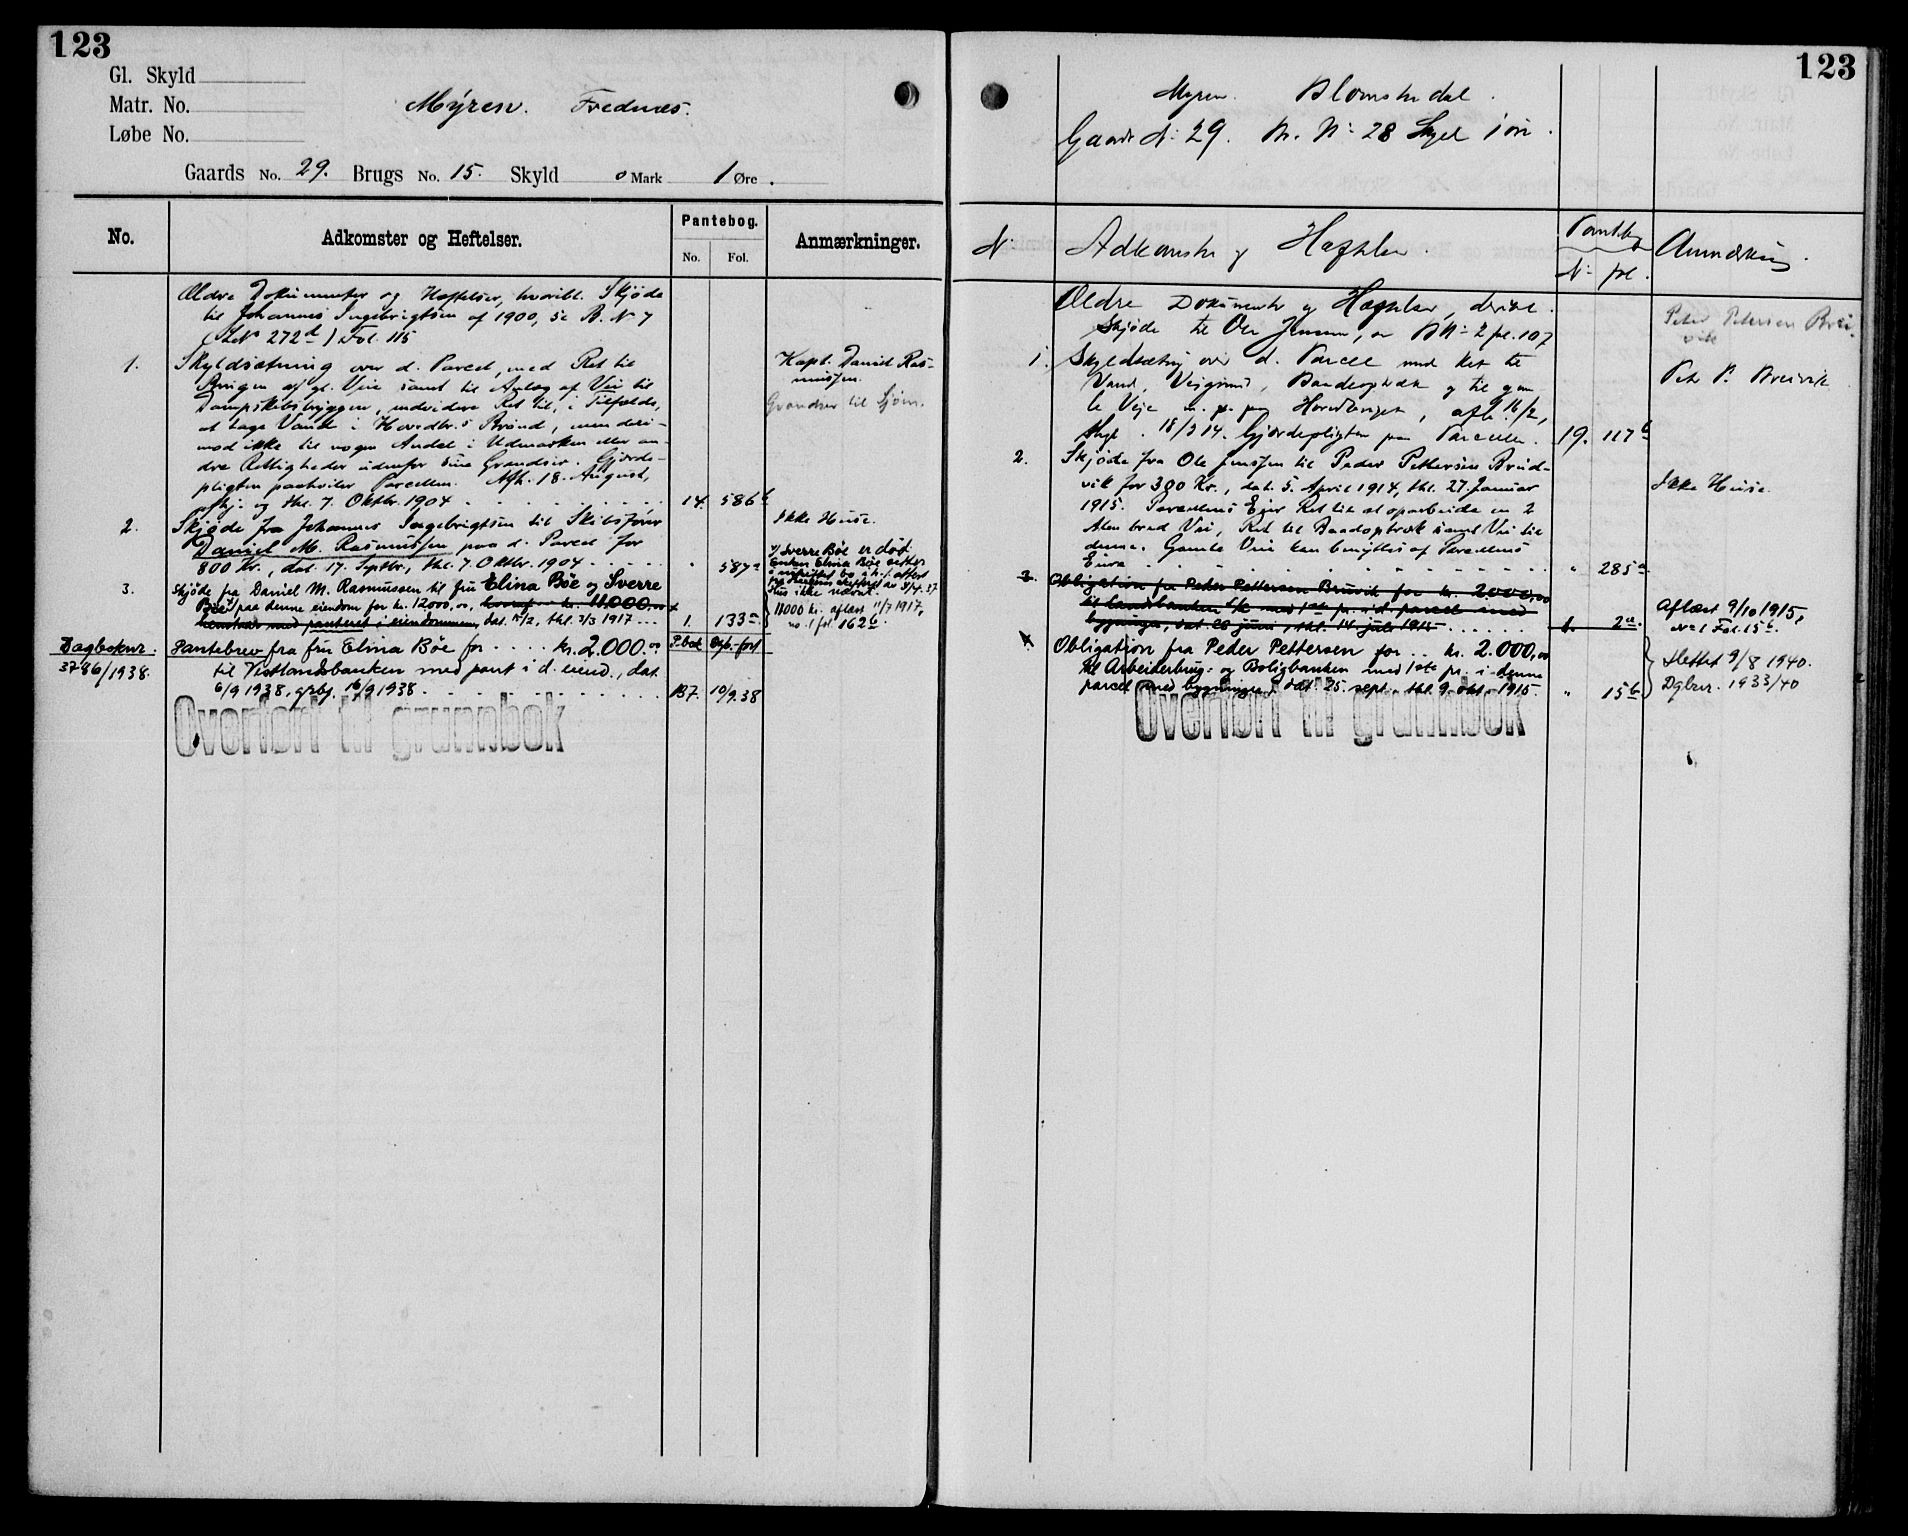 123
Gl. Skyld
Matr. No.
Løbe No.
Myren. Frednes.
Gaards No. 29. Brugs No. 15. Skyld 0 Mark 1 Øre.
No.
Adkomster og Heftelser.
Pantebog.
No. Fol.
Anmærkninger.
Ældre Dokumenter og Heftelser, heribl. Skjøde
til Johannes Ingebrigtsen af 1900, se B. No 7
(L No 272d) Fol. 115
1. Skyldsætning over d. Parcel, med Ret til
Brugen af gl. Veie samt til Anlæg af Vei til
Dampskibsbryggen, endvidere Ret til, i Tilfælde,
at tage Vand i Hovedbr.s Brønd, men deri-
mod ikke til nogen Andel i Udmarken eller an-
dre Rettigheder udenfor sine Grændser. Gjærde-
pligten paahviler Parcellen. Afh. 18. August,
skj. og thl. 7. Oktbr. 1904 14. 586b
2. Skjøde fra Johannes Ingebrigtsen til Skibsfører
Daniel M. Rasmussen paa d. Parcel for
800 Kr., dat. 17. Septbr., thl. 7. Oktbr. 1904 " 587a
3. Skjøde fra Daniel M. Rasmussen til fru Elina Bøe og Sverre
Bøe paa denne eiendom for kr. 12000,00, hvoraf kr. 11.000,00
henstaar med panteret i eiendommen, dat. 15/2, thl. 3/3 1917 1. 133a
Kapt. Daniel Ras-
mussen.
Grændser til Sjøen.
Ikke Huse.
Sverre Bøe er død
Enken Elina Bøe sitter
i uskiftet bo
Hus ikke nævnt.
11000 kr. aflæst 11/7 1917,
no. 1 fol. 162b.
Dagboknr. Pantebrev fra fru Elina Bøe for kr. 2.000.00 P.bok Dgb.-ført
3786/1938. til Vestlandsbanken med pant i d. eiend., dat.
6/9 1938, grbf. 16/9 1938 B7. 10/9.38
Overført til grunnbok
123
Myren. Blomsterdal.
Gaards No 29. Br. No 28 Skyld 1 øre.
No
Adkomster og Heftelser.
Pantebog
No fol.
Anmærkning.
Ældre Dokumenter og Heftelser, deribl.
Skjøde til Ole Jensen, se B No 2 fol. 107
1. Skyldsætning over d. Parcel med Ret til
Vand, Veigrund, Baadoptræk og til gam-
le Veje m. p. paa Hovedbruget, afh. 16/2,
thgl. 18/3 14. Gjærdepligten paa Parcellen. 19. 117b
2. Skjøde fra Ole Jenssen til Peder Pettersen Breid-
vik for 300 Kr., dat. 5. April 1914, thl. 27. Januar
1915. Parcellens Eier Ret til at oparbeide en 2
Alen bred Vei, Ret til Baadoptræk samt Vei til
denne. Gamle Veie kan benyttes af Parcellens
Eiere " 285a
3. Obligation fra Peder Pettersen Breivik for kr. 2000,00
til Landsbanken A/S med 1ste pr. i d. parcel med
bygninger, dat. 28 juni, thl. 14 juli 1915 1. 2a.
4 Obligation fra Peder Pettersen for kr. 2.000,00
til Arbeiderbrug- og Boligbanken med 1ste pr. i denne
parcel med bygninger, dat. 25. sept., thl. 9. okt. 1915. " 15b
Peter Petersen Brei-
vik
Petr P. Breivik
Ikke Huse.
Aflæst 9/10 1915,
No 1 Fol. 15b.
Slettet 9/8 1940.
Dgbnr. 1933/40
Overført til grunnbok